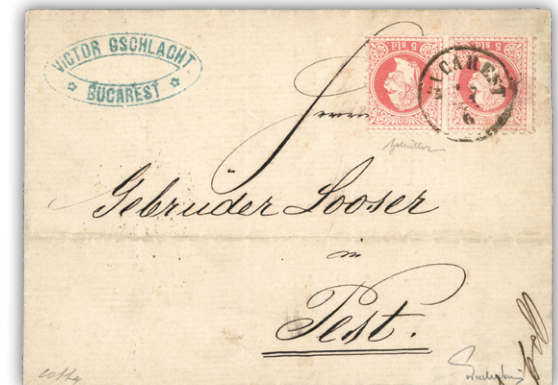 VICTOR GSCHLACHT.
BUCAREST
5 sld 5 sld
BUCAREST
6
Herrn
Gebrüder Looser
in
Pest.